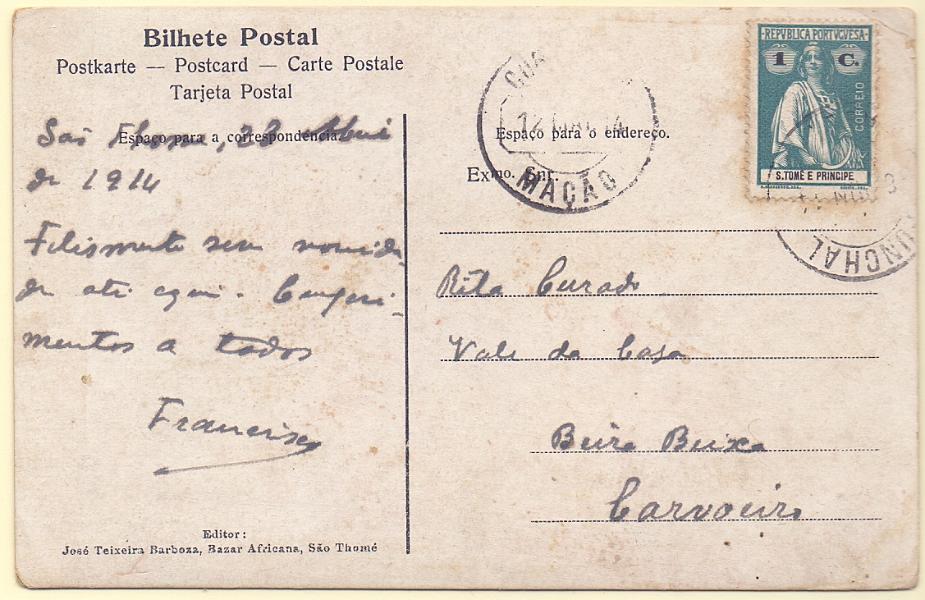 Bilhete Postal
Postkarte — Postcard — Carte Postale
Tarjeta Postal
Espaço para a correspondência
São Thomé, 23 Abril
de 1914
Felismente sem novida-
de até aqui. Cumpri-
mentos a todos
Francisco
Editor:
José Teixeira Barboza, Bazar Africana, São Thomé
REPUBLICA PORTUGUESA
1 C.
CORREIO
S. TOMÉ E PRINCIPE
MAÇÃO
FUNCHAL
Espaço para o endereço.
Exmo. Snr.
Rita Curado
Vale da Casa
Beira Beixa
Carvoeiro